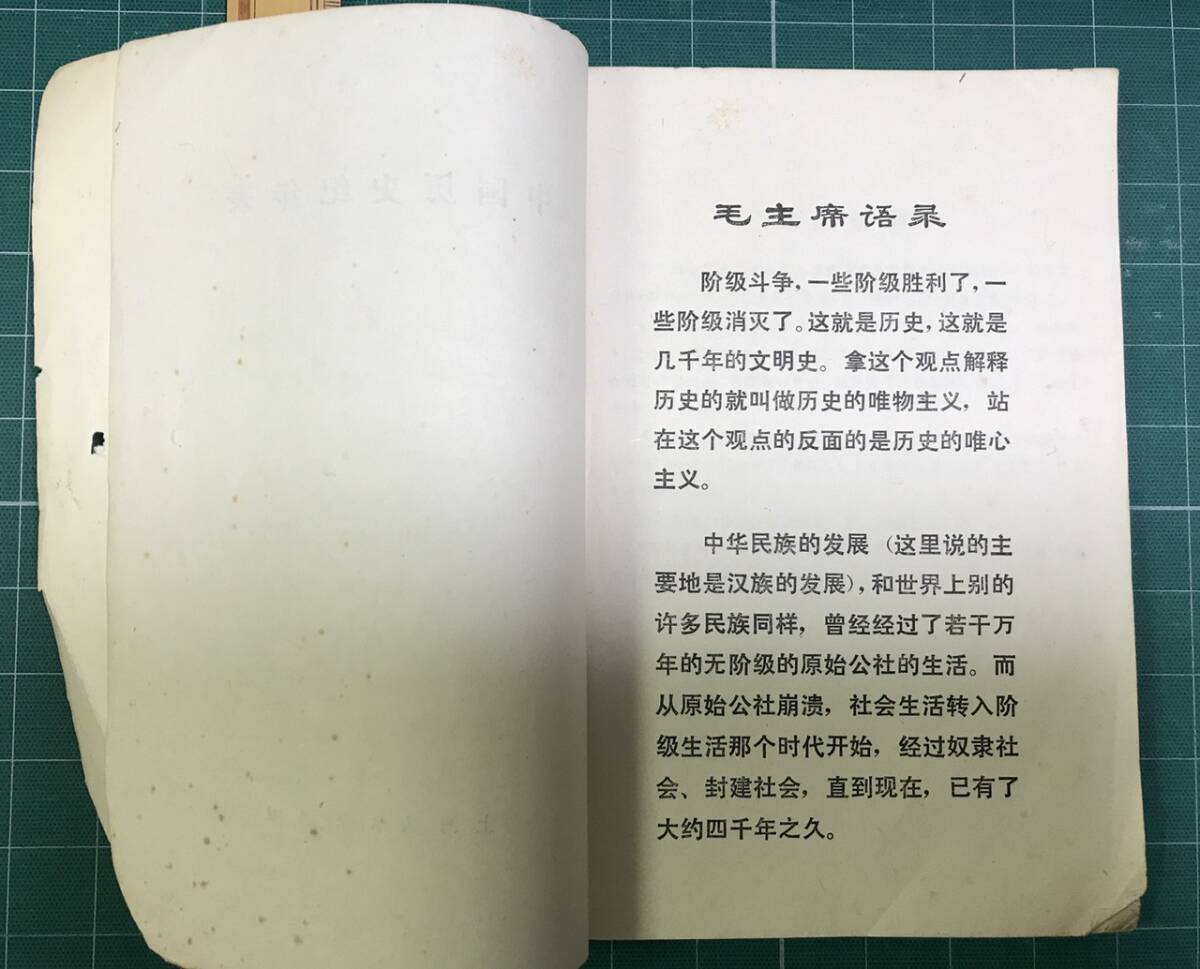 中国历史纪年表
毛主席语录
阶级斗争，一些阶级胜利了，一
些阶级消灭了。这就是历史，这就是
几千年的文明史。拿这个观点解释
历史的就叫做历史的唯物主义，站
在这个观点的反面的是历史的唯心
主义。
中华民族的发展（这里说的主
要地是汉族的发展），和世界上别的
许多民族同样，曾经经过了若干万
年的无阶级的原始公社的生活。而
从原始公社崩溃，社会生活转入阶
级生活那个时代开始，经过奴隶社
会、封建社会，直到现在，已有了
大约四千年之久。